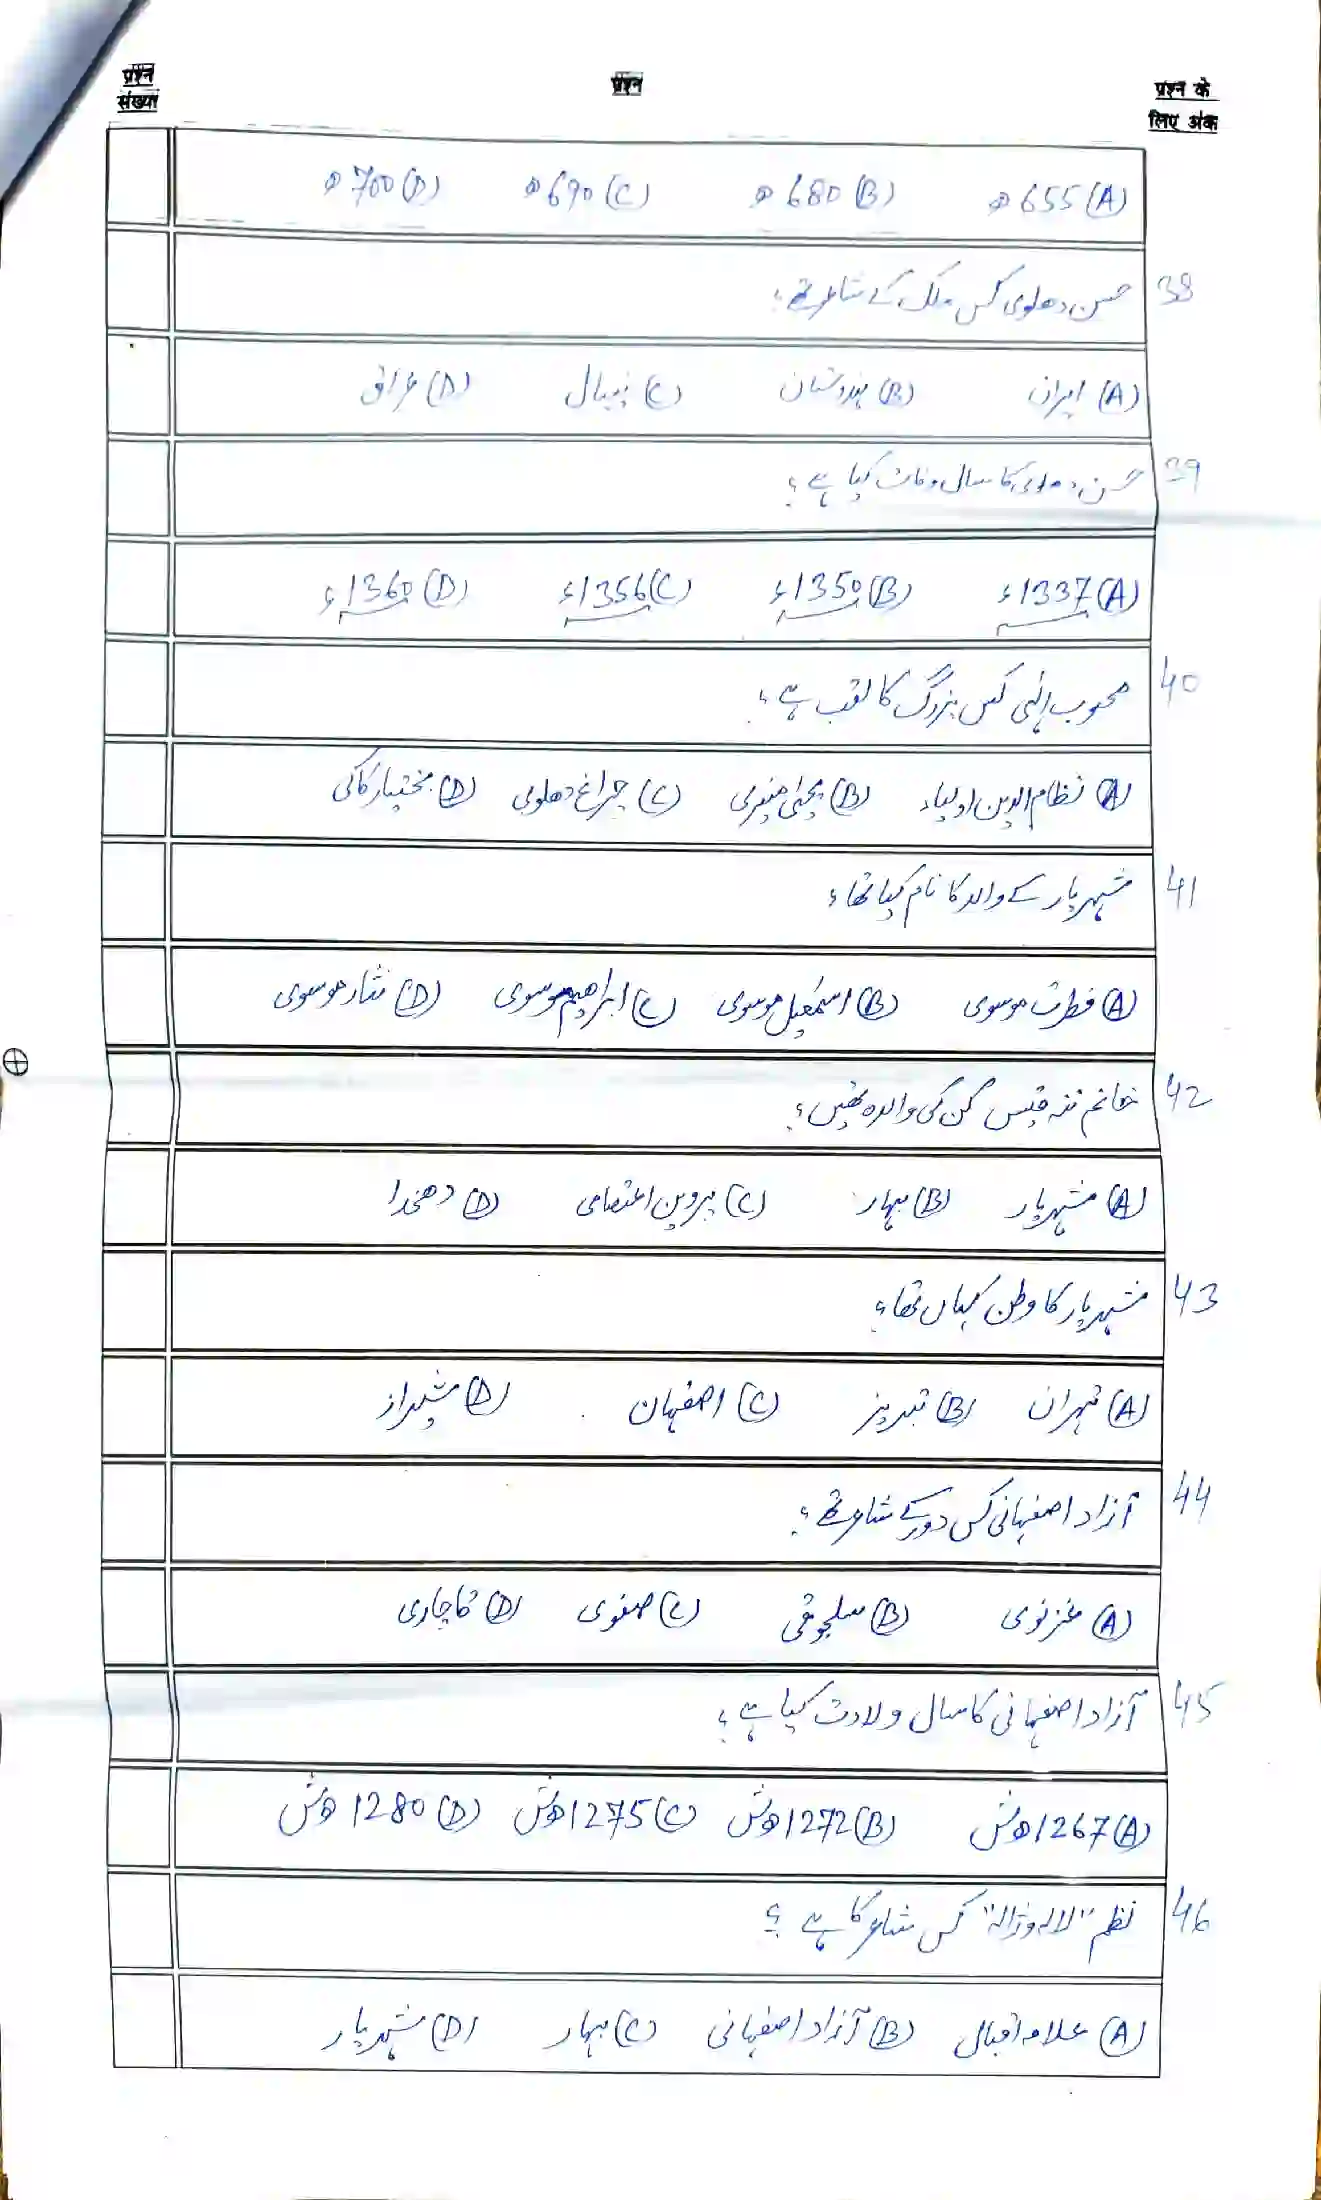 प्रश्न संख्या
प्रश्न
प्रश्न के लिए अंक
(A) 655ھ (B) 680ھ (C) 690ھ (D) 700ھ
38 حسن دھلوی کس ملک کے شاعر تھے؟
(A) ایران (B) ہندوستان (C) نیپال (D) عراق
39 حسن دھلوی کا سال وفات کیا ہے؟
(A) 1337ء (B) 1350ء (C) 1356ء (D) 1360ء
40 محبوب الٰہی کس بزرگ کا لقب ہے؟
(A) نظام الدین اولیاء (B) یحییٰ منیری (C) چراغ دھلوی (D) بختیار کاکی
41 شہریار کے والد کا نام کیا تھا؟
(A) فطرت موسوی (B) اسمٰعیل موسوی (C) ابراھیم موسوی (D) نثار موسوی
42 خانم ننہ قیس کن کی والدہ تھیں؟
(A) شہریار (B) بہار (C) پروین اعتصامی (D) دھخدا
43 شہریار کا وطن کہاں تھا؟
(A) تہران (B) تبریز (C) اصفہان (D) شیراز
44 آزاد اصفہانی کس دور کے شاعر تھے؟
(A) غزنوی (B) سلجوقی (C) صفوی (D) قاچاری
45 آزاد اصفہانی کا سال ولادت کیا ہے؟
(A) 1267ھش (B) 1272ھش (C) 1275ھش (D) 1280ھش
46 نظم "لالہ و ژالہ" کس شاعر کا ہے؟
(A) علامہ اقبال (B) آزاد اصفہانی (C) بہار (D) شہریار